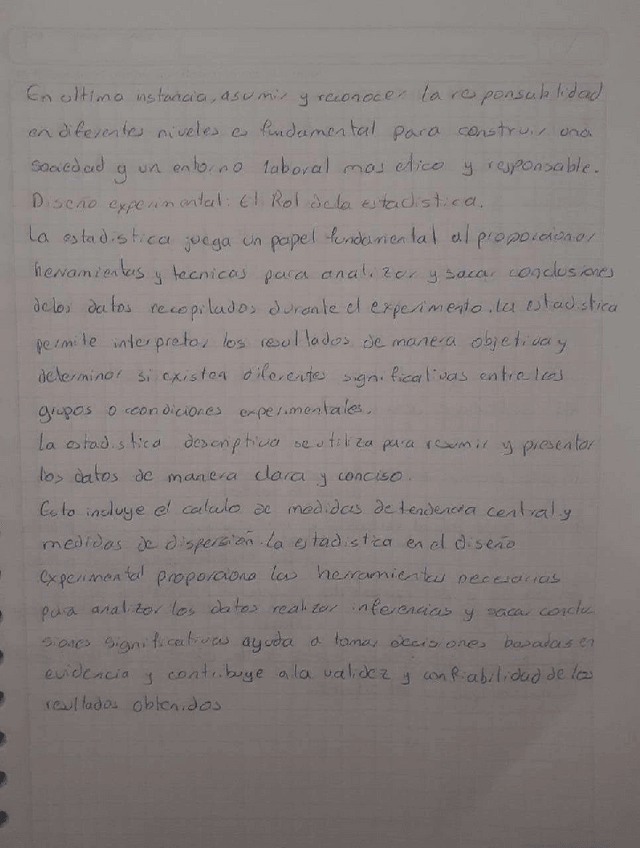 En ultimo instancia, asumir y reconocer la responsabilidad
en diferentes niveles es fundamental para construir una
sociedad y un entorno laboral mas etico y responsable.
Diseño experimental: El Rol de la estadistica.
La estadistica juega un papel fundamental al proporcionar
herramientas y tecnicas para analizar y sacar conclusiones
de los datos recopilados durante el experimento. La estadistica
permite interpretar los resultados de manera objetiva y
determinar si existen diferentes significativas entre los
grupos o condiciones experimentales.
La estadistica descriptiva se utiliza para resumir y presentar
los datos de manera clara y conciso.
Esto incluye el calculo de medidas de tendencia central y
medidas de dispersión. La estadistica en el diseño
experimental proporciona las herramientas necesarias
para analizar los datos realizar inferencias y sacar conclu
siones significativas ayuda a tomar decisiones basadas en
evidencia y contribuye a la validez y confiabilidad de los
resultados obtenidos